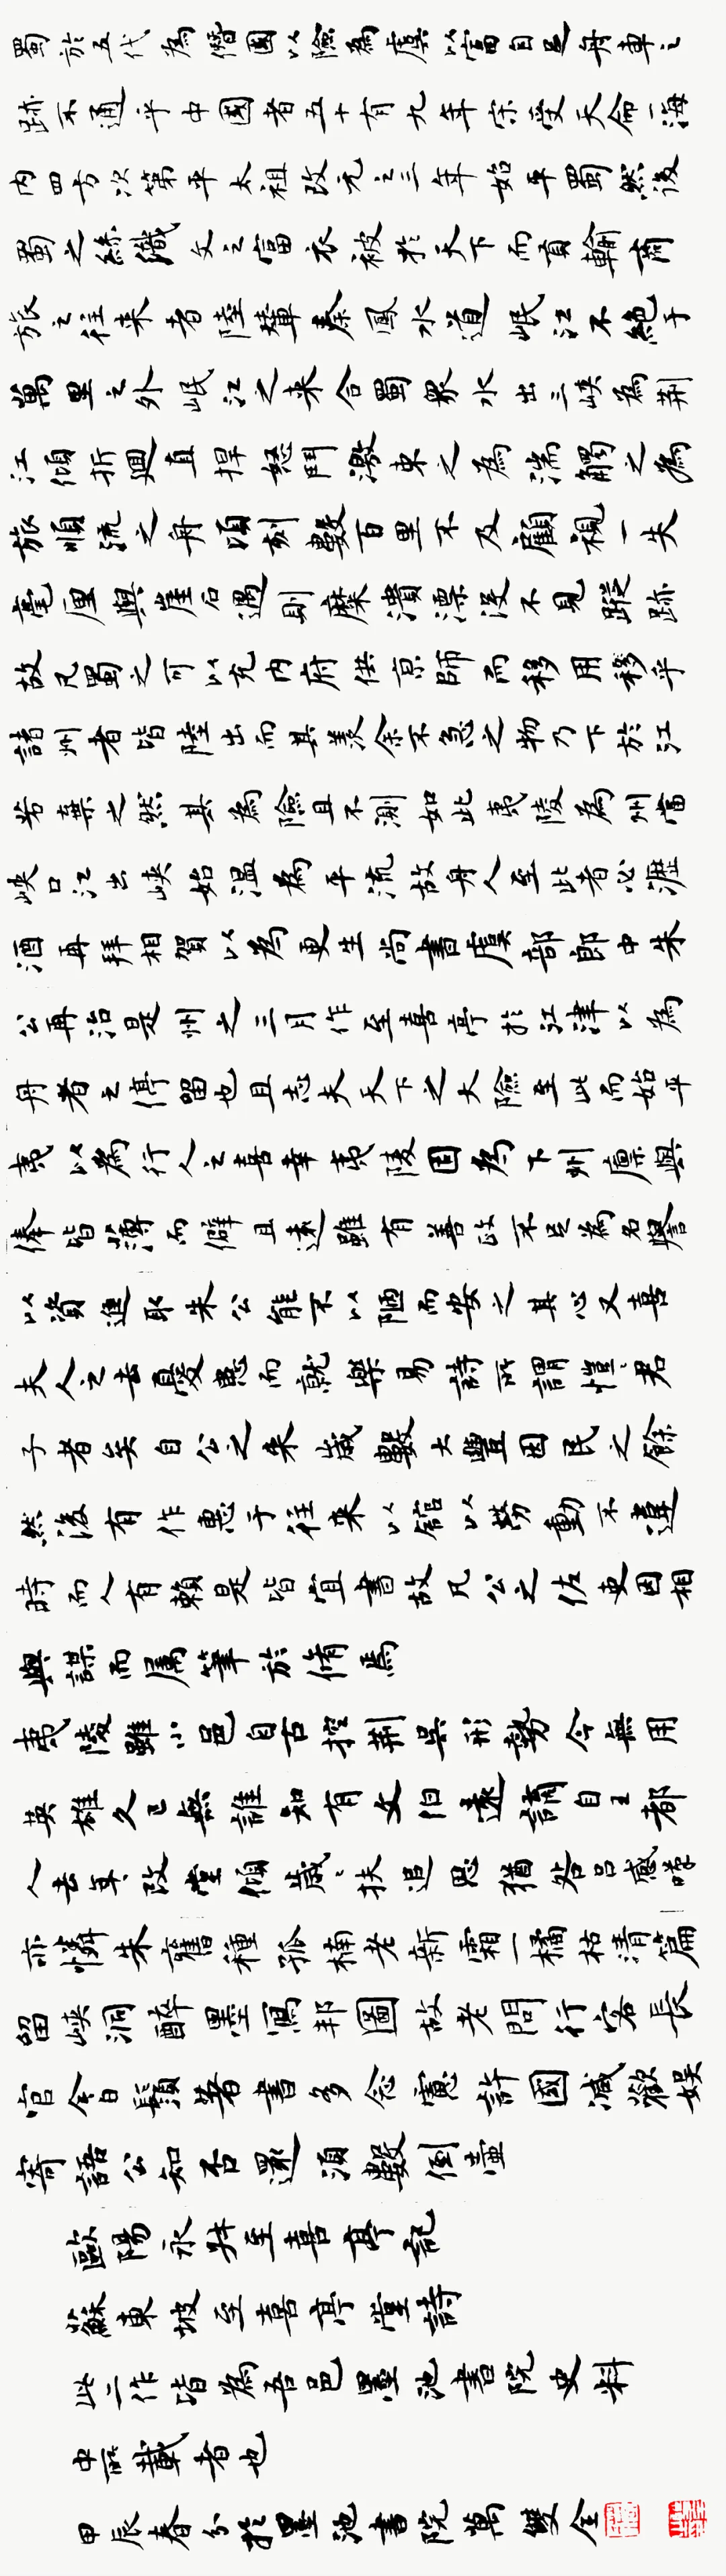 蜀於五代為僭國以險為虞以富自足舟車之
跡不通乎中國者五十有九年宋受天命一海
内四方次第平太祖改元之三年始平蜀然後
蜀之絲織文之富衣被於天下而貢輸商
旅之往来者陸輦秦鳳水道岷江不絶于
萬里之外岷江之来合蜀眾水出三峽為荆
江傾折迴直捍怒鬥激束之為湍觸之為
旅順流之舟頃刻數百里不及顧視一失
毫厘與崖石遇則糜潰漂没不見蹤跡
故凡蜀之可以充内府供京師而移用移乎
諸州者皆陸出而其羡余不急之物乃下於江
若棄之然其為險且不測如此夷陵為州當
峽口江出峽始温為平流故舟人至此者必瀝
酒再拜相賀以為更生尚書虞部郎中朱
公再治是州之三月作至喜亭於江津以為
舟者之停留也且志夫天下之大險至此而始平
夷以為行人之喜幸夷陵固為下州廪與
俸皆薄而僻且遠雖有善政不足為名譽
以資進取朱公能不以陋而安之其心又喜
夫人之去憂患而就樂易詩所謂愷悌君
子者矣自公之来歲數大豐因民之餘
然後有作惠于往来以館以勞動不違
時而人有賴是皆宜書故凡公之佐吏因相
與謀而属筆於脩焉
夷陵雖小邑自古控荆吳形勢今無用
英雄久已無誰知有文伯遠謫自王都
人去年改堂傾歲歲扶追思猶咎吕感嘆
亦憐朱舊種孤楠老新霜一橘枯清篇
留峽洞醉墨寫邦圖故老問行客長
官今白鬚著書多念慮許國減歡娱
寄語公知否還須數倒壺
歐陽永叔至喜亭記
蘇東坡至喜亭堂詩
此二作皆為吾邑墨池書院史料
中所載者也
甲辰春分於墨池書院萬雙全